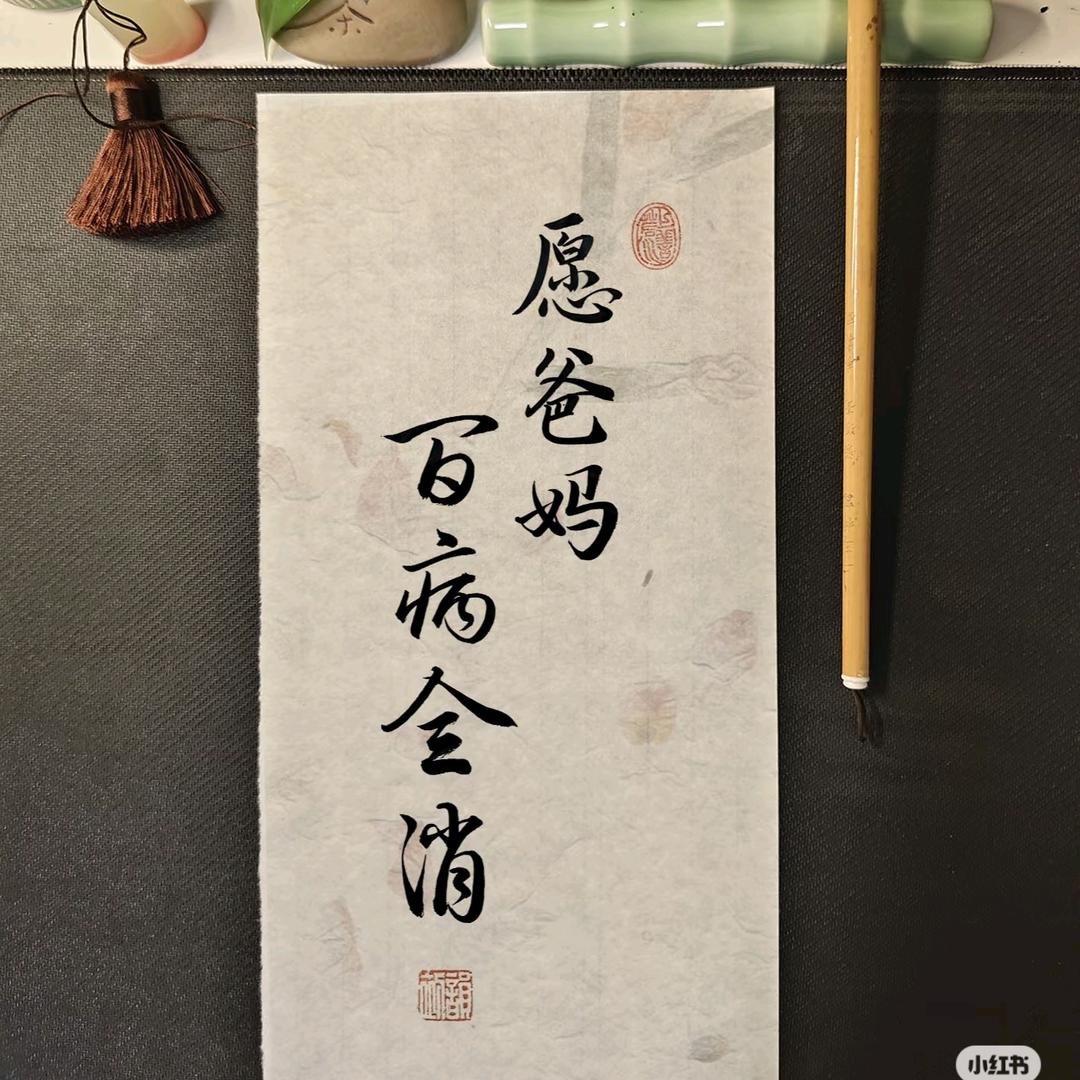 愿爸妈
百病全消
小红书